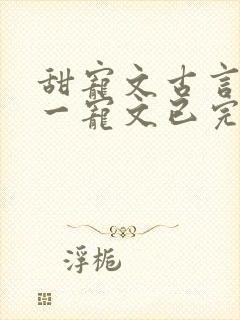 甜宠文古言
一宠文已完
浮栀